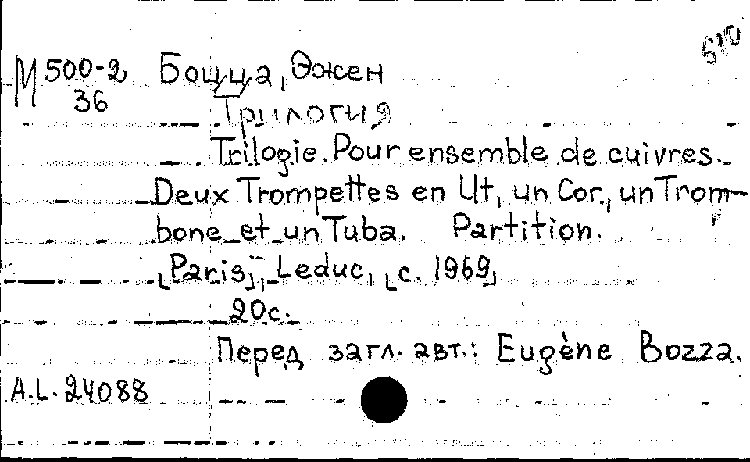 М 500-2 Боцца, Эжен
36
Трилогия
Trilogie. Pour ensemble de cuivres.
Deux Trompettes en Ut, un Cor, un Trom-
bone et un Tuba. Partition.
[Paris], Leduc, [c. 1969]
20с.
Перед загл. авт.: Eugène Bozza.
A.L. 24088